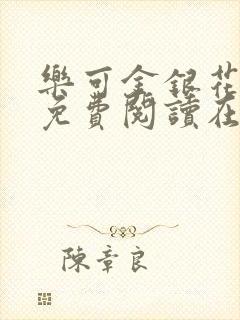 樂可金銀花
免費閱讀在
陳章良